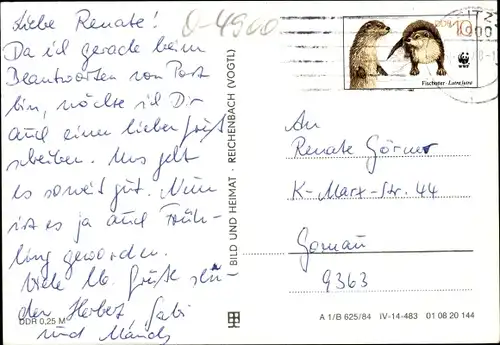 Liebe Renate!
Da ich gerade beim
Beantworten von Post
bin, möchte ich Dir
auch einen lieben Gruß
schreiben. Uns geht
es soweit gut. Nun
ist es ja auch Früh-
ling geworden.
Viele lb. Grüße
Herbert, Gabi
und
DDR 0,25 M
0-4900
BILD UND HEIMAT · REICHENBACH (VOGTL)
DDR 10
WWF
Fischotter · Lutra lutra
An
Renate Görner
K-Marx-Str. 44
Gornau
9363
A 1/B 625/84 IV-14-483 01 08 20 144